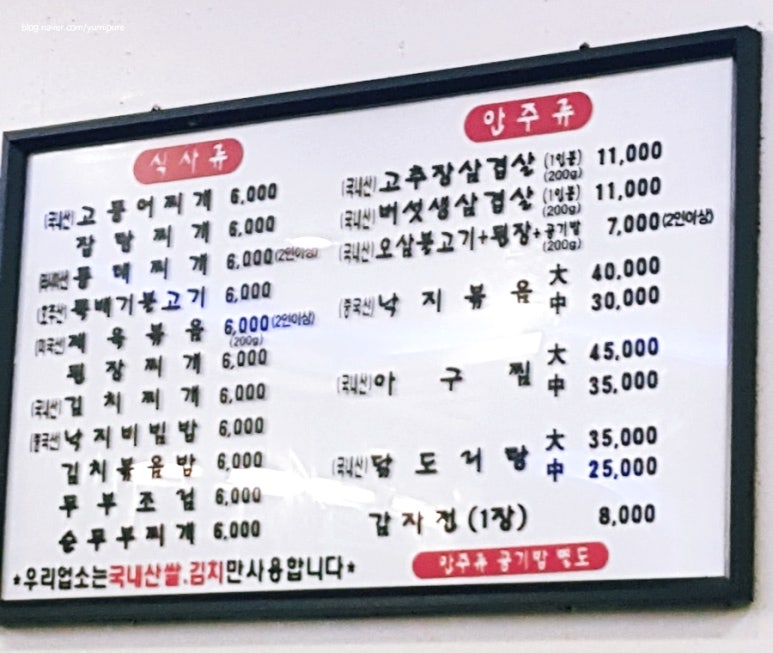 blog.naver.com/yumipure
식사류
(국내산) 고등어찌개 6,000
잡탕찌개 6,000
(러시아산) 동태찌개 6,000 (2인이상)
(호주산) 뚝배기불고기 6,000
(미국산) 제육볶음 6,000 (2인이상)
(200g)
된장찌개 6,000
(국내산) 김치찌개 6,000
(중국산) 낙지비빔밥 6,000
김치볶음밥 6,000
두부조림 6,000
순두부찌개 6,000
*우리업소는국내산쌀.김치만사용합니다*
안주류
(국내산) 고추장삼겹살 (1인분) (200g) 11,000
(국내산) 버섯생삼겹살 (1인분) (200g) 11,000
(국내산) 오삼불고기+된장+공기밥 (200g) 7,000 (2인이상)
(중국산) 낙지볶음 大 40,000
中 30,000
(국내산) 아구찜 大 45,000
中 35,000
(국내산) 닭도리탕 大 35,000
中 25,000
감자전 (1장) 8,000
안주류 공기밥 별도